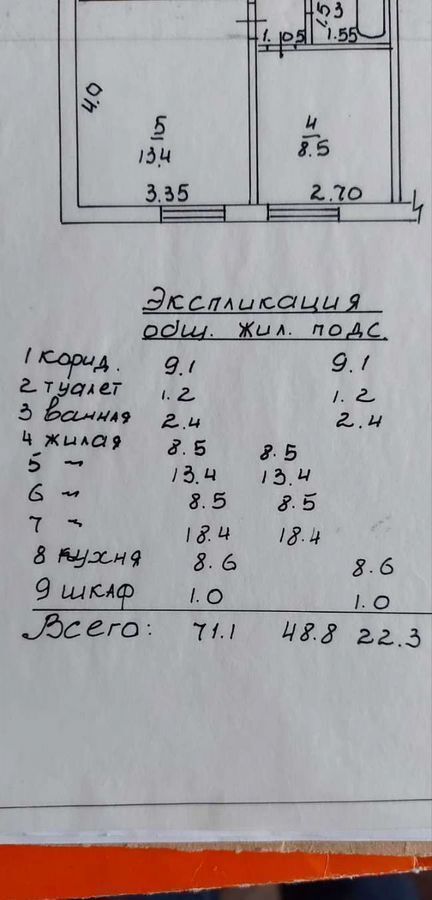 1.53
1. 05 1.55
4.0
5 4
13.4 8.5
3.35 2.70
Экспликация
общ. жил. подс.
1 корид. 9.1 9.1
2 туалет 1.2 1.2
3 ванная 2.4 2.4
4 жилая 8.5 8.5
5 ~ 13.4 13.4
6 ~ 8.5 8.5
7 ~ 18.4 18.4
8 кухня 8.6 8.6
9 шкаф 1.0 1.0
Всего: 71.1 48.8 22.3